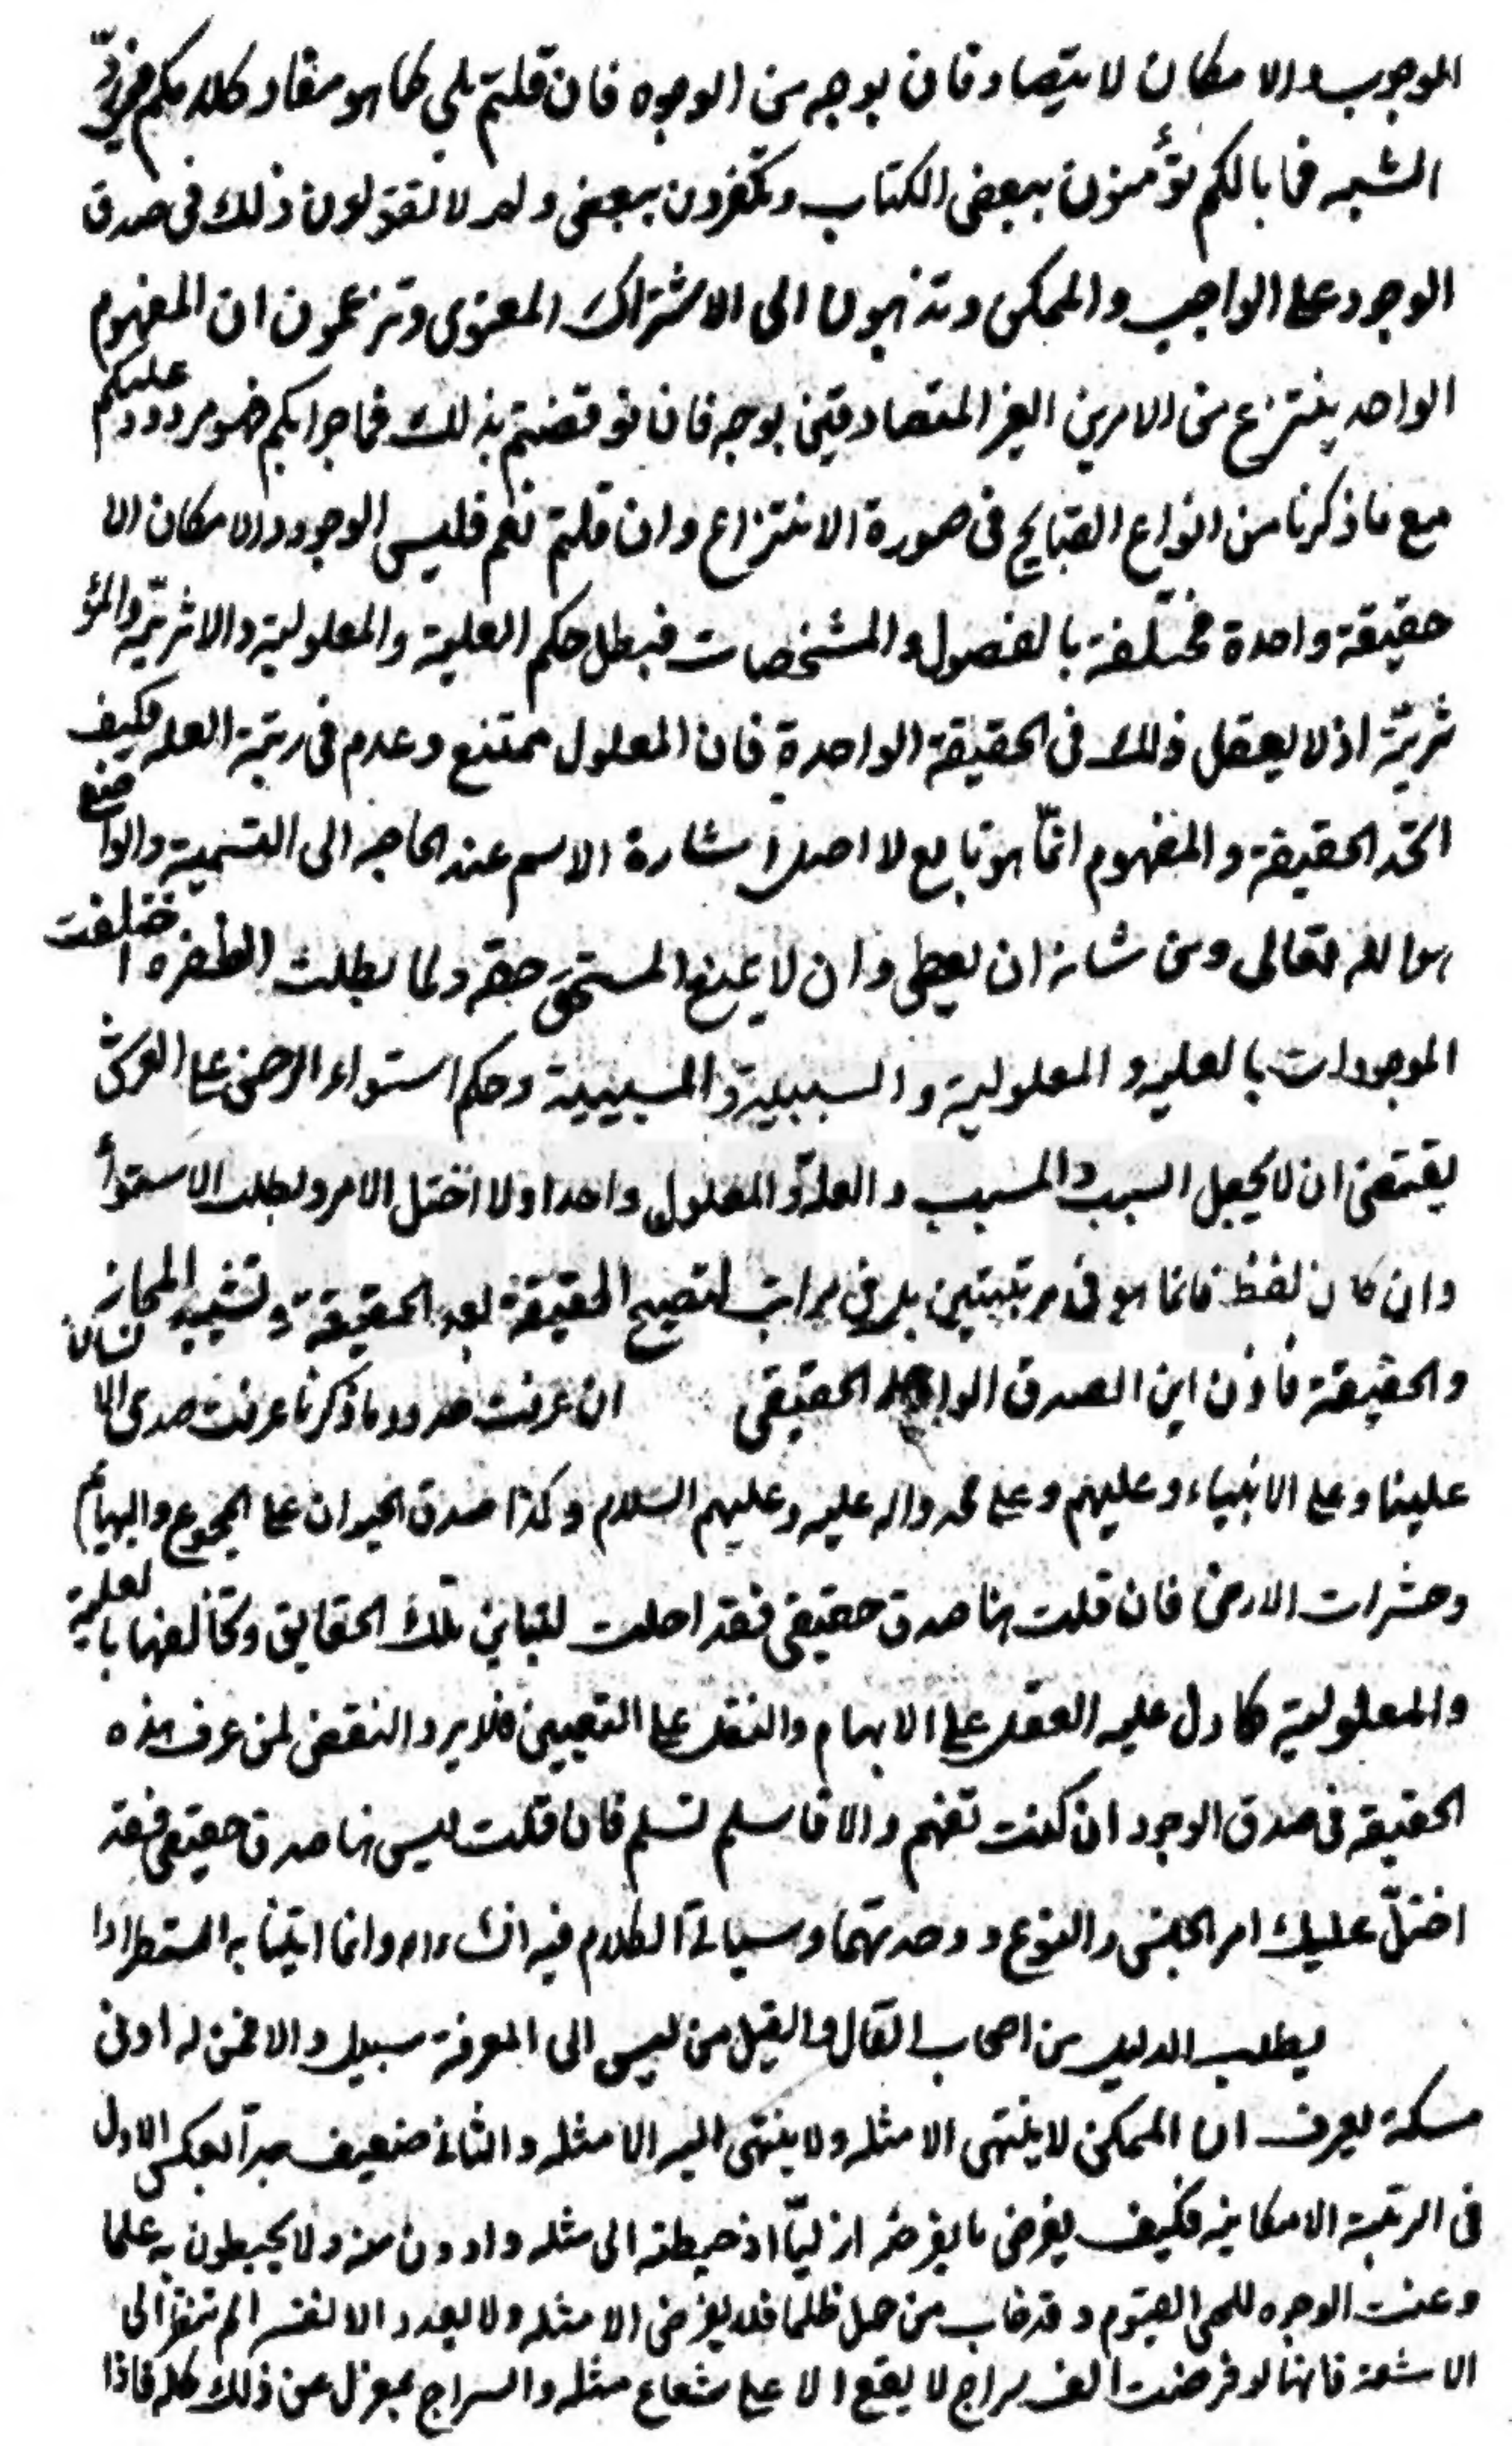 الوجوب والامكان لا يتصادقان بوجه من الوجوه فان قلتم بلي كما هو مفاد كلامكم في ردّ
الشبه فما بالكم تؤمنون ببعض الكتاب وتكفرون ببعض ولم لا تقولون ذلك في صدق
الوجود علي الواجب والممكن وتذهبون الى الاشتراك المعنوى وتزعمون ان المفهوم
الواحد ينتزع من الامرين الغير المتصادقين بوجه فان نوقضتم بذلك فما جوابكم فهو مردود عليكم
مع ما ذكرنا من انواع القبايح في صورة الانتزاع وان قلتم نعم فليس الوجود والامكان الا
حقيقة واحدة مختلفة بالفصول والمشخصات فبطل حكم العلية والمعلولية والاثريّة والمؤ
ثريّة اذ لا يعقل ذلك في الحقيقة الواحدة فان المعلول ممتنع وعدم في رتبة العلة فكيف
اتحد الحقيقة والمفهوم انّما هو تابع لا اصل اشارة الاسم عند الحاجة الى التسمية والواضع
هو الله تعالى ومن شانه ان يعطى وان لا يمنع المستحق حقه ولما بطلت الطفرة اختلفت
الموجودات بالعلية والمعلولية والسببية والمسببية وحكم استواء الرحمن علي العرش
يقتضي ان لا يجعل السبب والمسبب والعلة والمعلول واحدا ولا اختل الامر وبطلت الاستواء
وان كان لفظ فانما هو في مرتبتين بل في مراتب لتصحيح الحقيقة بعد الحقيقة وتشييد المجاز
والحقيقة فاذن اين الصدق الواحد الحقيقي ان عرفت حدود ما ذكرنا عرفت صدق الانسان
علينا وعلي الانبياء وعليهم وعلي محمد واله عليه وعليهم السلام وكذا صدق الحيوان علي المجموع والبهائم
وحشرات الارض فان قلت هنا صدق حقيقي فقد احلت لتباين تلك الحقايق وتخالفها بالعلية
والمعلولية كما دل عليه العقل علي الابهام والنقل علي التعيين فلا يرد النقض لمن عرف هذه
الحقيقة في صدق الوجود ان كنت تفهم والا فاسلم تسلم فان قلت ليس هنا صدق حقيقي فقد
اختلّ عليك امر الجنس والنوع ووحدتهما وسياتي الكلام فيه انشاء الله وانما اتينا به استطرادا
يطلب الدليل من اصحاب القال والقيل من ليس الى المعرفة سبيل والا فمن له ادنى
مسكة يعرف ان الممكن لا ينتهى الا مثله ولا ينتهى اليه الا مثله والثاني ضعيف جدا بعكس الاول
في الرتبة الامكانية فكيف يفرض ما يفرضه ازليّا اذ حيطته الى مثله وادون منه ولا يحيطون به علما
وعنت الوجوه للحى القيوم وقد خاب من حمل ظلما فلا يفرض الا مثله ولا يعدد الا نفسه الم تنظر الى
الاشعة فانها لو فرضت الف سراج لا يقع الا علي شعاع مثله والسراج بمعزل عن ذلك كله فاذا